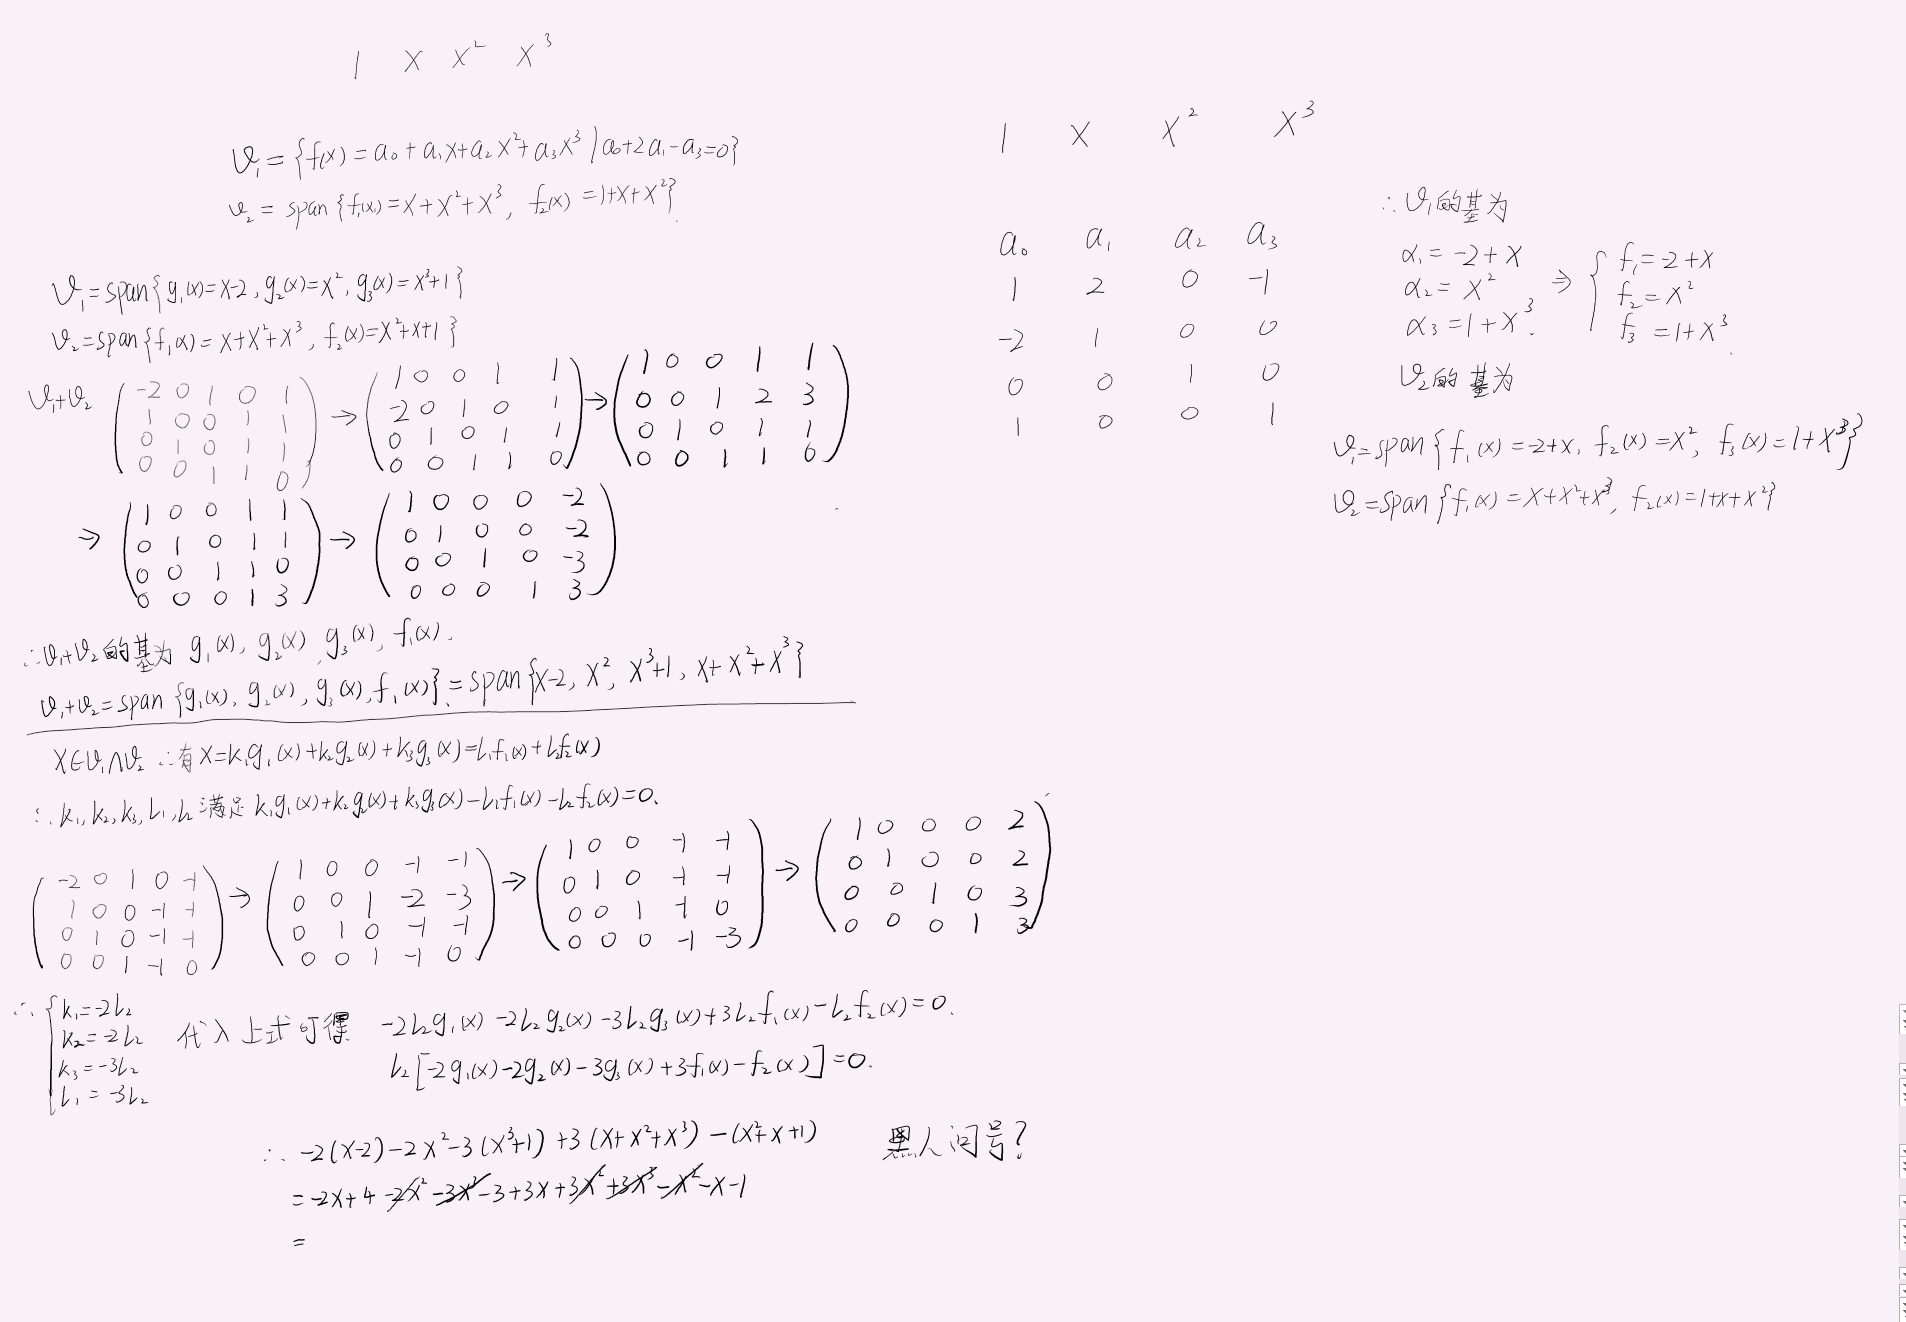 1 x x² x³
V₁={f(x)=a₀+a₁x+a₂x²+a₃x³|a₀+2a₁-a₃=0}
V₂=span{f₁(x)=x+x²+x³, f₂(x)=1+x+x²}.
V₁=span{g₁(x)=x-2, g₂(x)=x², g₃(x)=x³+1}
V₂=span{f₁(x)=x+x²+x³, f₂(x)=x²+x+1}
V₁+V₂ (-2 0 1 0 1; 1 0 0 1 1; 0 1 0 1 1; 0 0 1 1 0) → (1 0 0 1 1; -2 0 1 0 1; 0 1 0 1 1; 0 0 1 1 0) → (1 0 0 1 1; 0 0 1 2 3; 0 1 0 1 1; 0 0 1 1 0)
⇒ (1 0 0 1 1; 0 1 0 1 1; 0 0 1 1 0; 0 0 0 1 3) → (1 0 0 0 -2; 0 1 0 0 -2; 0 0 1 0 -3; 0 0 0 1 3)
∴V₁+V₂的基为 g₁(x), g₂(x), g₃(x), f₁(x).
V₁+V₂=span{g₁(x), g₂(x), g₃(x), f₁(x)}=span{x-2, x², x³+1, x+x²+x³}
X∈V₁∩V₂ ∴有X=k₁g₁(x)+k₂g₂(x)+k₃g₃(x)=L₁f₁(x)+L₂f₂(x)
∴k₁,k₂,k₃,L₁,L₂满足 k₁g₁(x)+k₂g₂(x)+k₃g₃(x)-L₁f₁(x)-L₂f₂(x)=0.
(-2 0 1 0 -1; 1 0 0 -1 -1; 0 1 0 -1 -1; 0 0 1 -1 0) → (1 0 0 -1 -1; 0 0 1 -2 -3; 0 1 0 -1 -1; 0 0 1 -1 0) → (1 0 0 -1 -1; 0 1 0 -1 -1; 0 0 1 -1 0; 0 0 0 -1 -3) → (1 0 0 0 2; 0 1 0 0 2; 0 0 1 0 3; 0 0 0 1 3)
∴ { k₁=-2L₂
k₂=-2L₂
k₃=-3L₂
L₁=-3L₂
代入上式可得 -2L₂g₁(x)-2L₂g₂(x)-3L₂g₃(x)+3L₂f₁(x)-L₂f₂(x)=0.
L₂[-2g₁(x)-2g₂(x)-3g₃(x)+3f₁(x)-f₂(x)]=0.
∴ -2(x-2)-2x²-3(x³+1)+3(x+x²+x³)-(x²+x+1)
=-2x+4-2x²-3x³-3+3x+3x²+3x³-x²-x-1
=
黑人问号?
1 x x² x³
a₀ a₁ a₂ a₃
1 2 0 -1
-2 1 0 0
0 0 1 0
1 0 0 1
∴V₁的基为
α₁=-2+x
α₂=x²
α₃=1+x³.
⇒ { f₁=-2+x
f₂=x²
f₃=1+x³.
V₂的基为
V₁=span{f₁(x)=-2+x, f₂(x)=x², f₃(x)=1+x³}
V₂=span{f₁(x)=x+x²+x³, f₂(x)=1+x+x²}